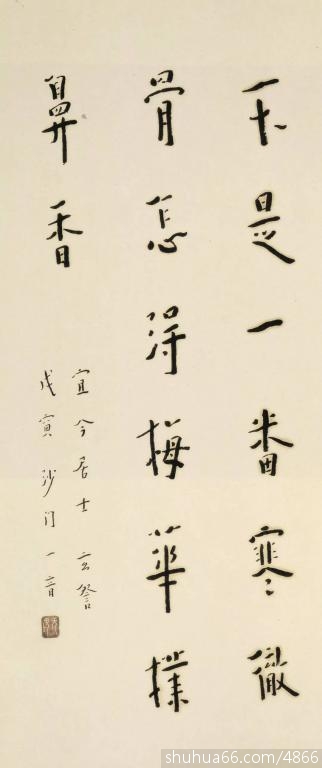 不是一番寒徹
骨怎得梅華撲
鼻香
宜今居士玄詧
戊寅沙門一音
shuhua66.com/4866